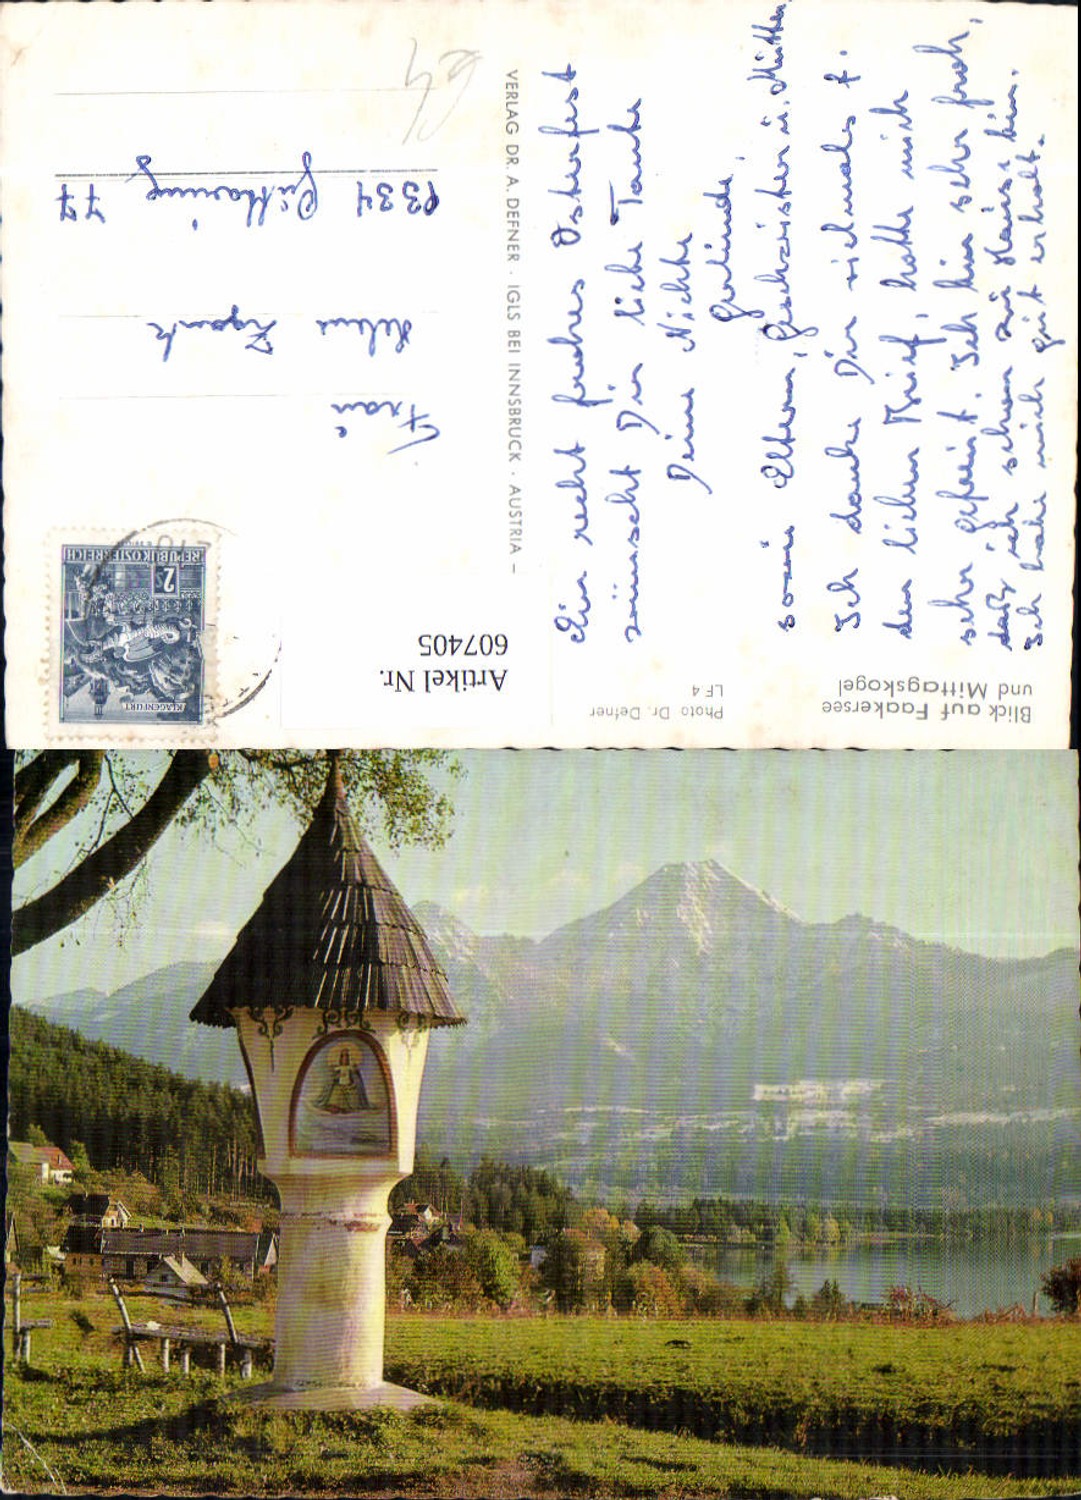 Ein recht frohes Osterfest
wünscht Dir liebe Tante
Deine Nichte
Gerlinde,
sowie Eltern, Geschwister u. Mutter.
Ich danke Dir vielmals f.
den lieben Brief, hatte mich
sehr gefreut. Ich bin sehr froh,
daß ich schon zu Hause bin.
Ich habe mich gut erholt.
Blick auf Faakersee
und Mittagskogel
Photo Dr. Defner
LF 4
Artikel Nr.
607405
VERLAG DR. A. DEFNER · IGLS BEI INNSBRUCK · AUSTRIA –
REPUBLIK ÖSTERREICH
2 S
KLAGENFURT
Frau
77